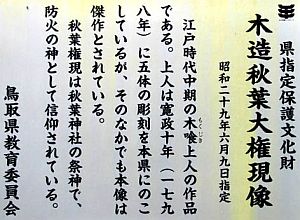 県指定保護文化財
木造秋葉大権現像
昭和二十九年六月九日指定
江戸時代中期の木喰上人の作品
もくじき
である。上人は寛政十年（一七九
八年）に五体の彫刻を本県にのこ
しているが、そのなかでも本像は
傑作とされている。
秋葉権現は秋葉神社の祭神で、
防火の神として信仰されている。
鳥取県教育委員会